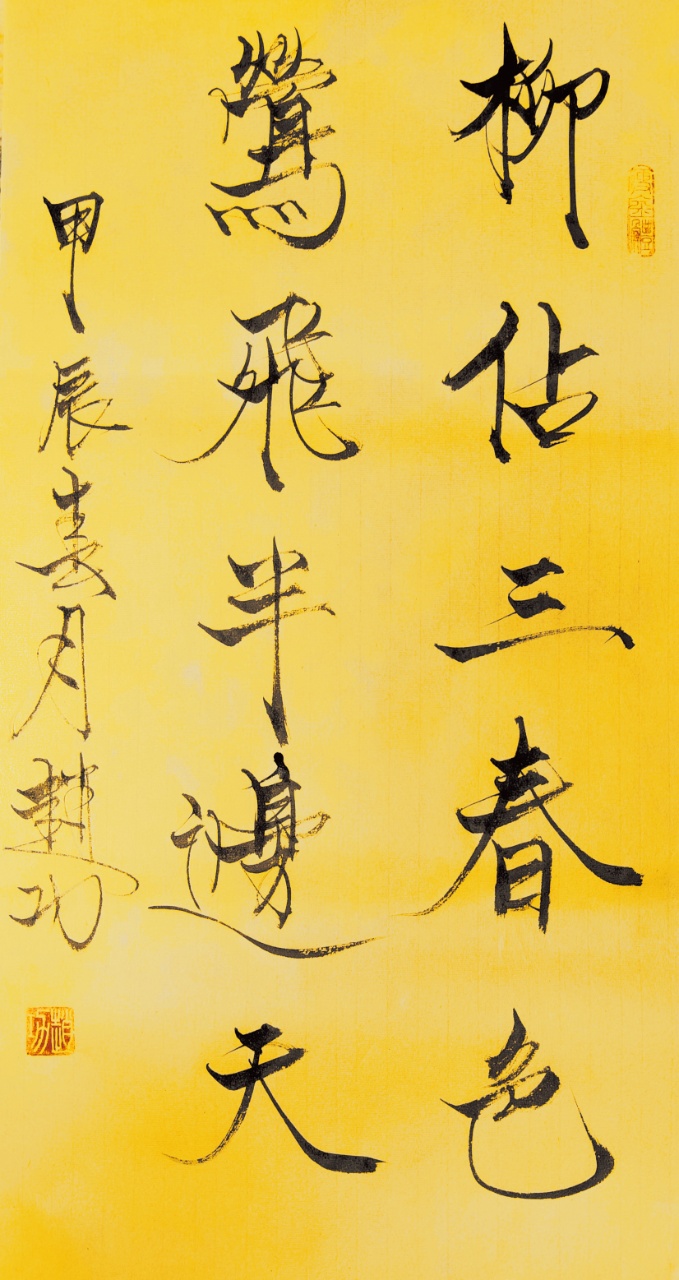 柳佔三春色
鶯飛半邊天
甲辰春月功